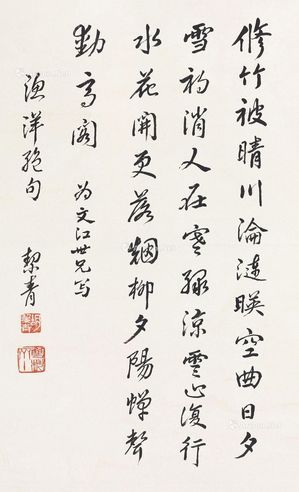 修竹被晴川淪漣暎空曲日夕
雪初消人在寒綠涼雲止復行
水花開更落烟柳夕陽蟬聲
動高閣
為文江世兄写
漁洋絕句
絜青